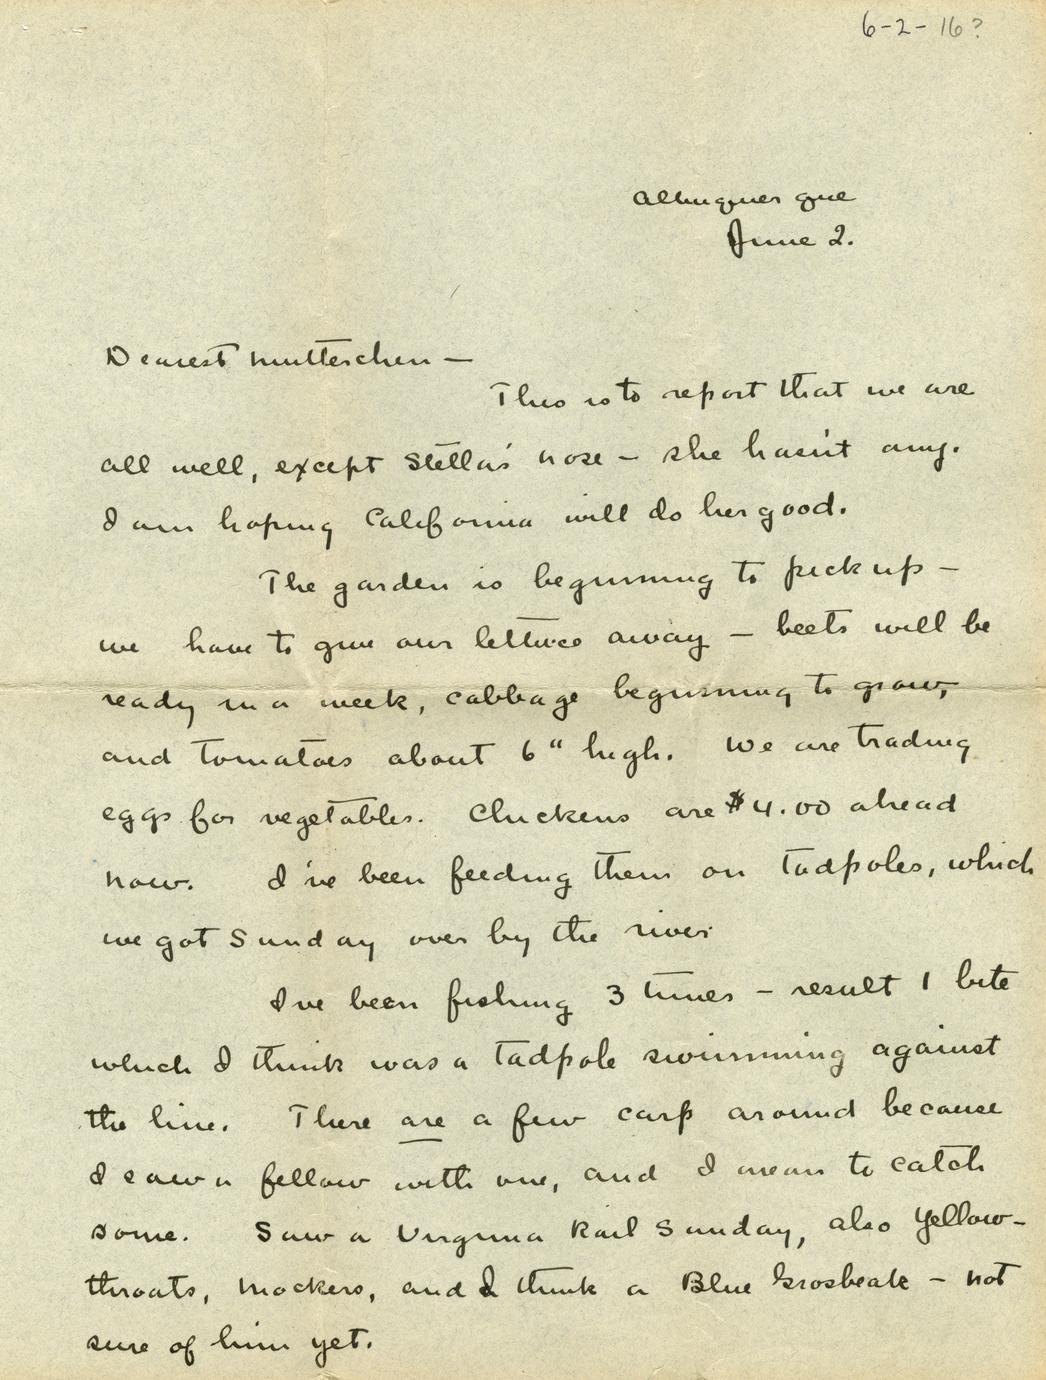 6-2-16?
Albuquerque
June 2.
Dearest Mutterchen —
This is to report that we are
all well, except Stella's nose — she hasn't any.
I am hoping California will do her good.
The garden is beginning to pick up —
we have to give our lettuce away — beets will be
ready in a week, cabbage beginning to grow,
and tomatoes about 6" high. We are trading
eggs for vegetables. Chickens are $4.00 ahead
now. I've been feeding them on tadpoles, which
we got Sunday over by the river.
I've been fishing 3 times — result 1 bite
which I think was a tadpole swimming against
the line. There are a few carp around because
I saw a fellow with one, and I mean to catch
some. Saw a Virginia Rail Sunday, also Yellow-
throats, Mockers, and I think a Blue Grosbeak — not
sure of him yet.